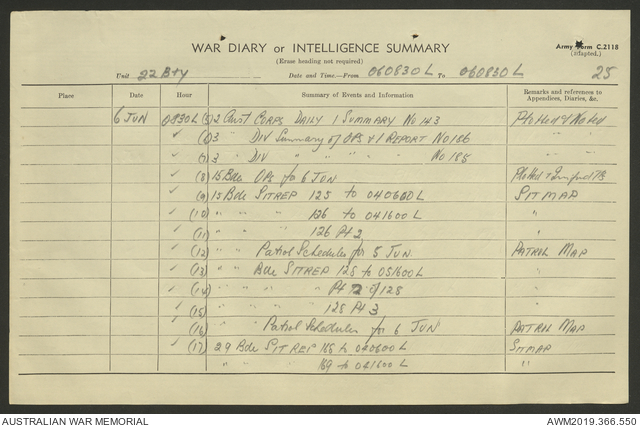 WAR DIARY or INTELLIGENCE SUMMARY
(Erase heading not required)
Army Form C.2118
(adapted.)
Unit 22 Bty Date and Time.—From 060830L To 060830L 25
Place Date Hour Summary of Events and Information Remarks and references to
Appendices, Diaries, &c.
6 JUN 0830L (5) 2 Aust CORPS DAILY I SUMMARY No 143 Plotted & Noted
✓ (6) 3 " DIV Summary of OPS & I REPORT No 186 " "
✓ (7) 3 " DIV " " " " No 188 " "
✓ (8) 15 Bde OPS for 6 JUN Plotted &
✓ (9) 15 Bde SITREP 125 to 040600L SITMAP
✓ (10) " " " 126 to 041600L "
✓ (11) " " " 126 Pt 2 "
✓ (12) " " Patrol Schedules for 5 JUN PATROL MAP
✓ (13) " " Bde SITREP 128 to 051600L "
✓ (14) " " " Pt 2 of 128 "
✓ (15) " " " 128 Pt 3 "
✓ (16) " Patrol Schedules for 6 JUN PATROL MAP
✓ (17) 29 Bde SITREP 168 to 040600L SITMAP
" " " 169 to 041600L "
AUSTRALIAN WAR MEMORIAL
AWM2019.366.550